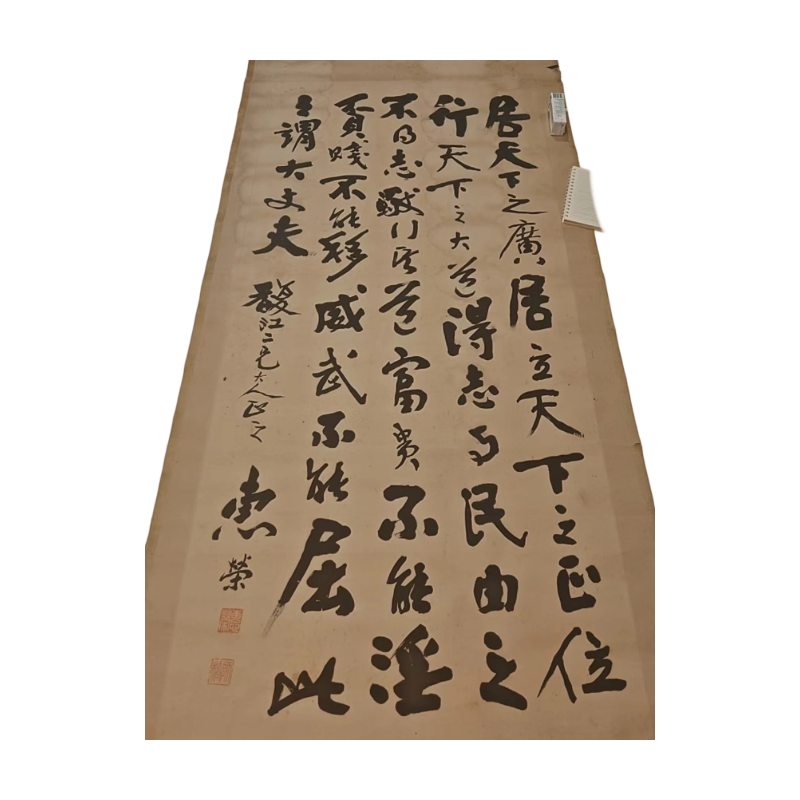 居天下之廣居立天下之正位
行天下之大道得志与民由之
不得志獨行其道富貴不能淫
貧賤不能移威武不能屈此
之謂大丈夫
馥江二兄大人正之
惠榮